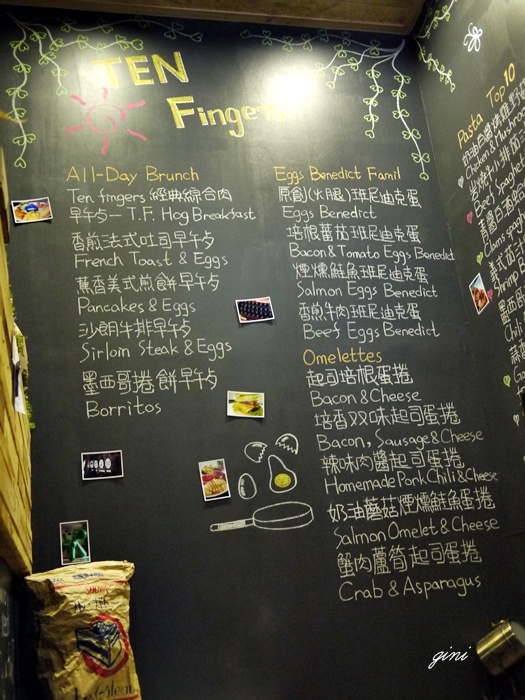 TEN
Finger
All-Day Brunch
Ten fingers 經典綜合肉
早午歺— T.F. Hog Breakfast
香煎法式吐司早午歺
French Toast & Eggs
薰香美式煎餅早午歺
Pancakes & Eggs
沙朗牛排早午歺
Sirloin Steak & Eggs
墨西哥捲餅早午歺
Borritos
Eggs Benedict Famil
原創(火腿)班尼迪克蛋
Eggs Benedict
培根蕃茄班尼迪克蛋
Bacon & Tomato Eggs Benedict
煙燻鮭魚班尼迪克蛋
Salmon Eggs Benedict
香煎牛肉班尼迪克蛋
Beef Eggs Benedict
Omelettes
起司培根蛋捲
Bacon & Cheese
培香双味起司蛋捲
Bacon, Sausage & Cheese
辣味肉醬起司蛋捲
Homemade Pork Chili & Cheese
奶油蘑菇煙燻鮭魚蛋捲
Salmon Omelet & Cheese
蟹肉蘆筍起司蛋捲
Crab & Asparagus
Pasta Top 10
Chicken & Mushroom
Beef Spaghe
Clams spag
gini